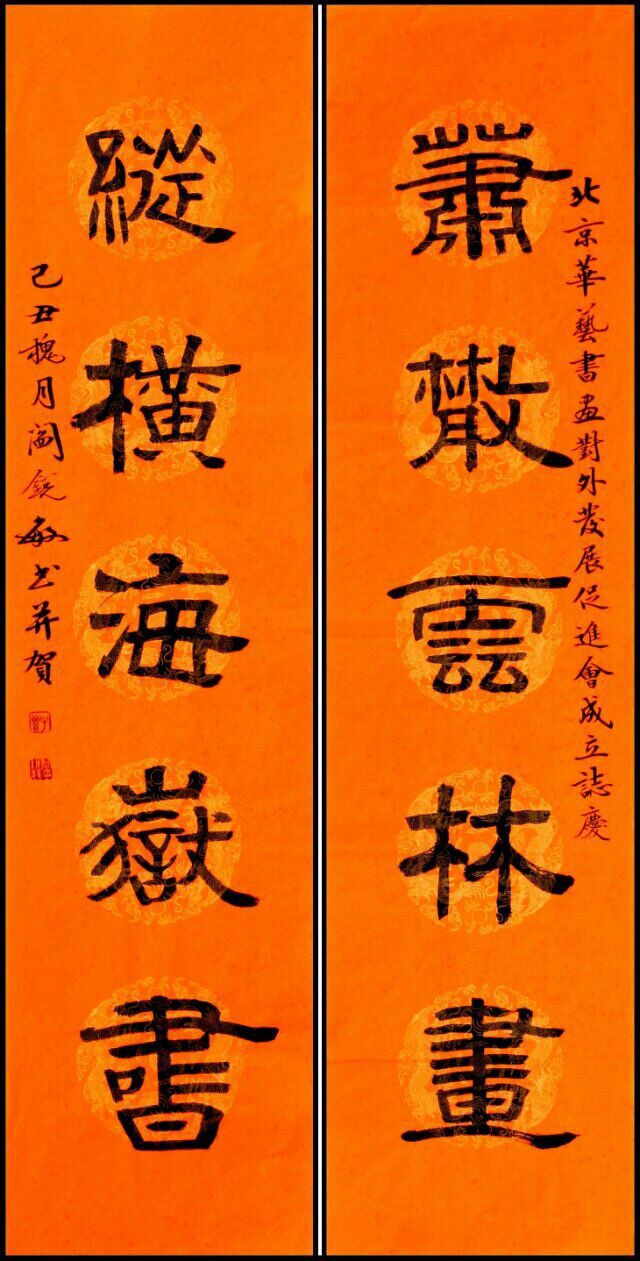 北京華藝書畫對外發展促進會成立誌慶
蕭散雲林畫
縱橫海嶽書
己丑槐月閻銳敏书并賀